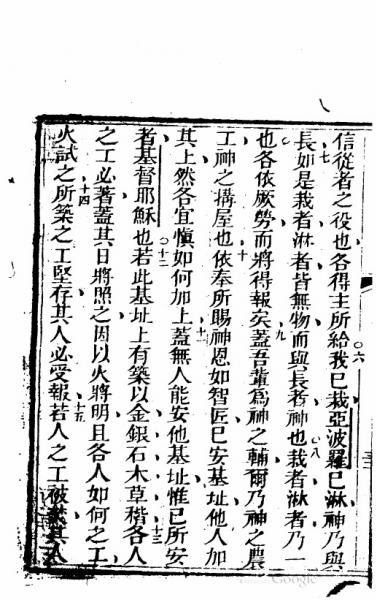 信從者之役也各得主所給○六我已栽亞波羅已淋神乃與
長○七如是栽者淋者皆無物而與長者神也○八栽者淋者乃一
也各依厥勞而將得報矣○九蓋吾輩為神之輔爾乃神之農
工神之搆屋也○十依奉所賜神恩如智匠已安基址他人加
其上然各宜慎如何加上○十一蓋無人能安他基址惟已所安
者基督耶穌也○十二若此基址上有築以金銀石木草稭○十三各人
之工必著蓋其日將照之因以火將明且各人如何之工
火試之○十四所築之工堅存其人必受報○十五若人之工被其人
Google